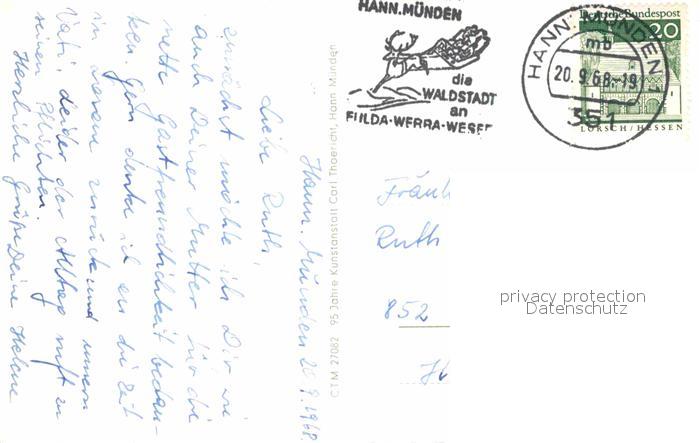 Hann. Münden 20.9.1968.
Liebe Ruth,
zunächst möchte ich Dir wie
auch Deiner Mutter für die
nette Gastfreundlichkeit bedan-
ken. Gern denke ich an die Zeit
in zurück und unsern
Vati, leider der Alltag ruft zu
seinen Pflichten.
Herzliche Grüße Deine Helene
C.T.M. 27082 95 Jahre Kunstanstalt Carl Thoericht, Hann. Münden
HANN.MÜNDEN
die
WALDSTADT
an
FULDA-WERRA-WESER
HANN. MÜNDEN 1
mb
20.9.68.-19
351
Deutsche Bundespost
20
LORSCH/HESSEN
Fräul
Ruth
852
privacy protection
Datenschutz